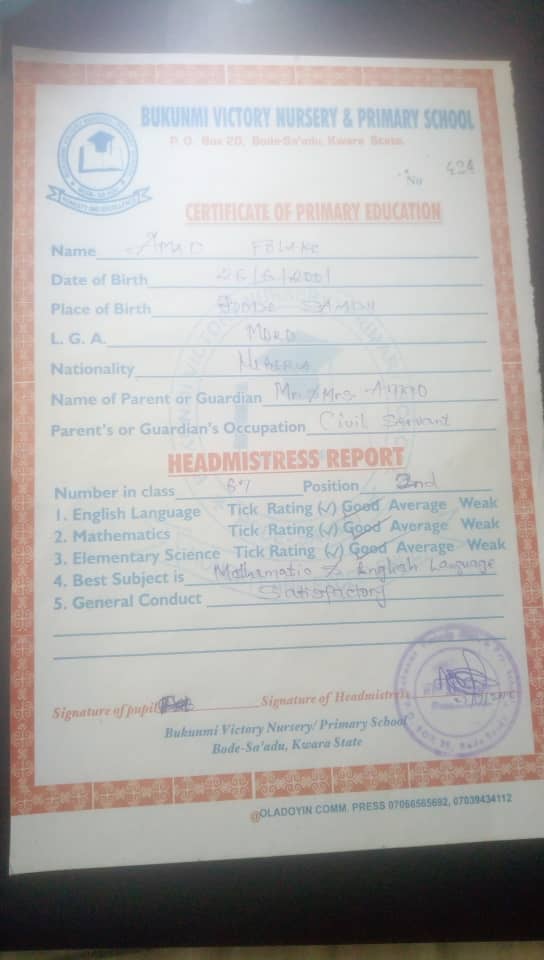 BUKUNMI VICTORY NURSERY & PRIMARY SCHOOL
P. O. Box 20, Bode-Sa'adu, Kwara State.
No 424
CERTIFICATE OF PRIMARY EDUCATION
Name
Date of Birth 26/6/2001
Place of Birth
L. G. A. MORO
Nationality NIGERIA
Name of Parent or Guardian Mr & Mrs
Parent's or Guardian's Occupation Civil Servant
HEADMISTRESS REPORT
Number in class 67 Position 2nd
1. English Language Tick Rating (✓) Good Average Weak
2. Mathematics Tick Rating (✓) Good Average Weak
3. Elementary Science Tick Rating (✓) Good Average Weak
4. Best Subject is Mathematic & English Language
5. General Conduct Satisfactory
Signature of pupil Signature of Headmistress
Bukunmi Victory Nursery/ Primary School
Bode-Sa'adu, Kwara State
@OLADOYIN COMM. PRESS 07066565692, 07039434112